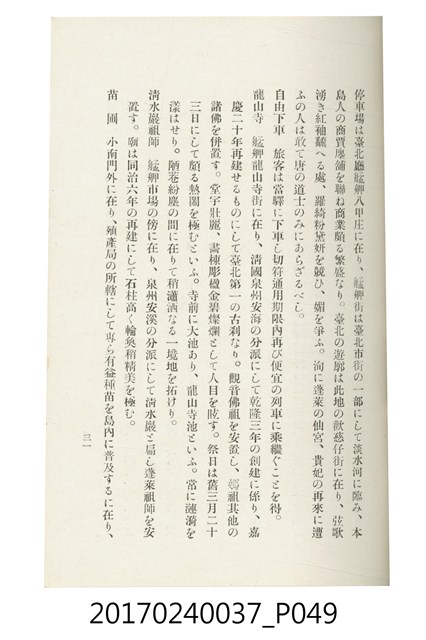 停車場は臺北廳艋舺八甲庄に在り、艋舺街は臺北市街の一部にして淡水河に臨み、本
島人の商賈廛舖を聯ね商業頗る繁盛なり。臺北の遊廓は此地の歡慈仔街に在り、弦歌
湧き紅袖飜へる處、羅綺粉黛姸を競ひ、媚を爭ふ。洵に蓬萊の仙宮、貴妃の再來に遭
ふの人は敢て唐の道士のみにあらざるべし。
自由下車 旅客は當驛に下車し切符通用期限內再び便宜の列車に乘繼ぐことを得。
龍山寺 艋舺龍山寺街に在り、淸國泉州安海の分派にして乾隆三年の創建に係り、嘉
慶二十年再建せるものにして臺北第一の古刹なり。觀音佛祖を安置し、媽祖其他の
諸佛を併置す。堂宇壯麗、畵棟彫楹金碧燦爛として人目を眩す。祭日は舊三月二十
三日にして頗る熱鬧を極むといふ。寺前に大池あり、龍山寺池といふ。常に漣漪を
漾はせり。陋巷紛塵の間に在りて稍瀟洒なる一境地を拓けり。
淸水巖祖師 艋舺市場の傍に在り、泉州安溪の分派にして淸水巖と扁し蓬萊祖師を安
置す。廟は同治六年の再建にして石柱高く輪奐稍精美を極む。
苗圃 小南門外に在り、殖產局の所轄にして專ら有益種苗を島內に普及するに在り、
三一
20170240037_P049